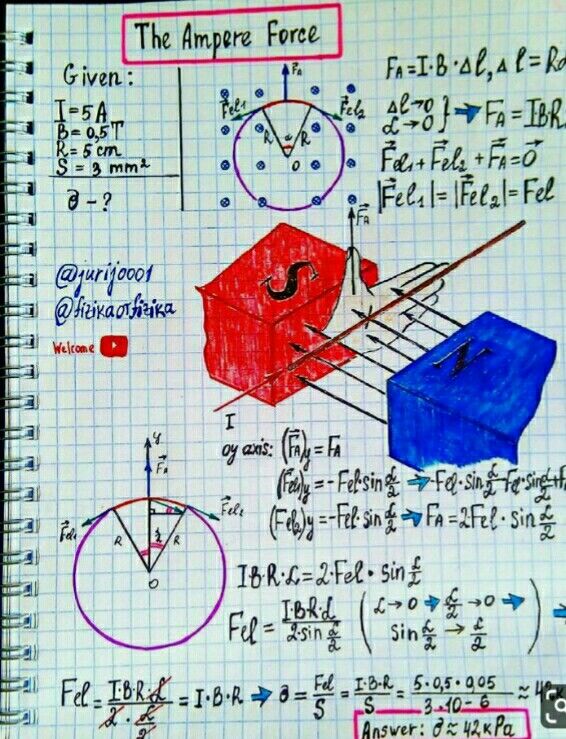 The Ampere Force
Given:
I=5A
B=0,5T
R=5cm
S=3 mm²
∂-?
F⃗A
F⃗el1
F⃗el2
R
α
R
O
FA=I·B·Δl, Δl=Rα
Δl→0
α→0 } ➡ FA=IBR
F⃗el1+F⃗el2+F⃗A=0⃗
|F⃗el1|=|F⃗el2|=Fel
@jurij0001
@fizikaotfizika
Welcome
F⃗A
S
N
I
oy axis: (F⃗A)y=FA
(F⃗el1)y=-Fel·sin α/2 ➡ -Fel·sin α/2-Fel·sin α/2+F
(F⃗el2)y=-Fel·sin α/2 ➡ FA=2Fel·sin α/2
y
F⃗A
F⃗el1
F⃗el2
R
α/2
R
O
I·B·R·α=2·Fel·sin α/2
Fel=I·B·R·α/2·sin α/2 (α→0 ➡ α/2→0 ➡ sin α/2→α/2) ➡
Fel=I·B·R·α/2·α/2=I·B·R ➡ ∂=Fel/S=I·B·R/S=5·0,5·0,05/3·10-6≈42к
Answer: ∂≈42кPa